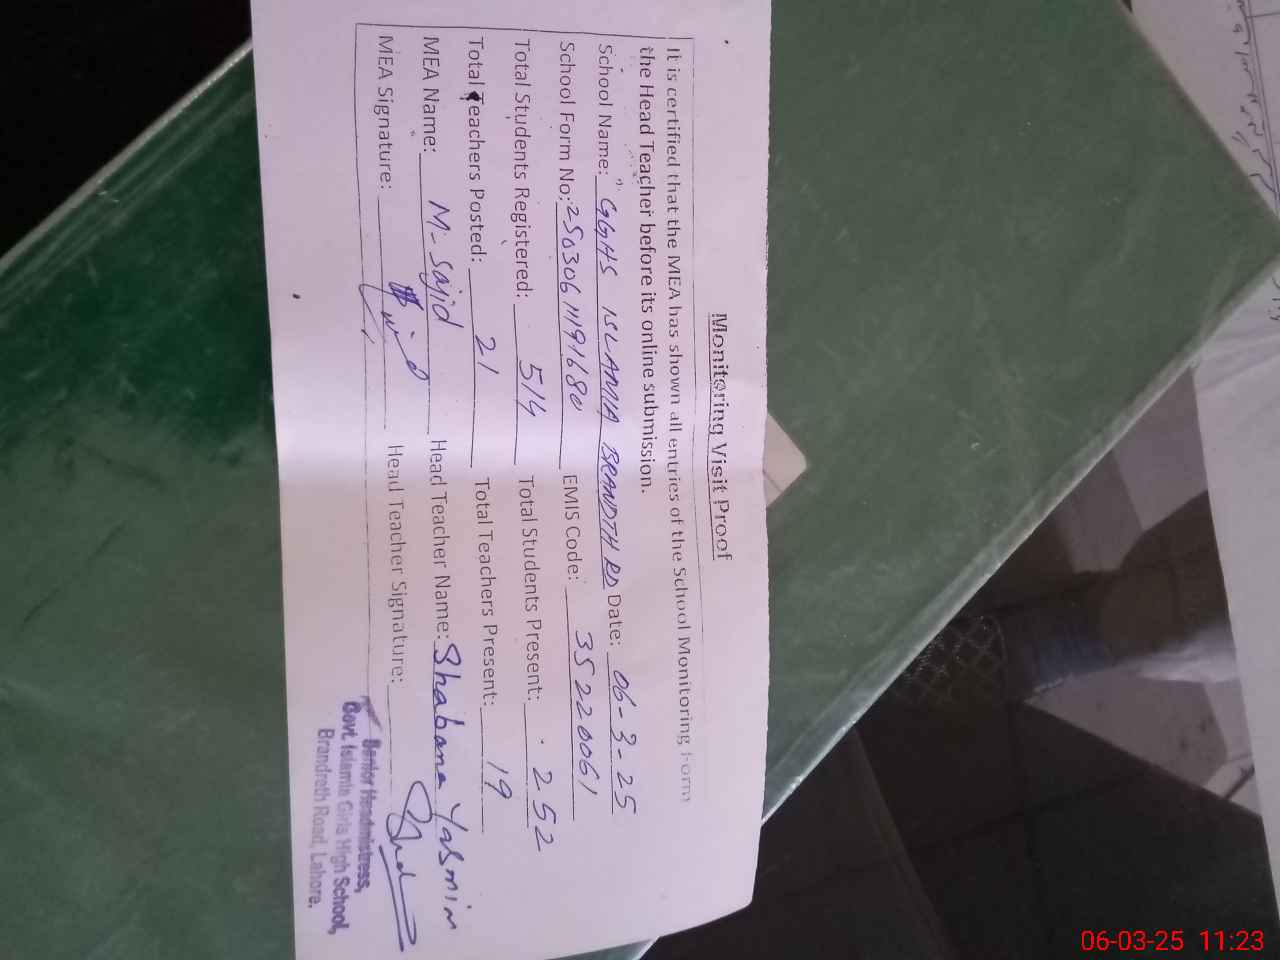 Monitoring Visit Proof
It is certified that the MEA has shown all entries of the School Monitoring Form
the Head Teacher before its online submission.
School Name: GGHS ISLAMIA BRANDTH RD Date: 06-3-25
School Form No: 25030611191680 EMIS Code: 35220061
Total Students Registered: 514 Total Students Present: 252
Total Teachers Posted: 21 Total Teachers Present: 19
MEA Name: M. Sajid Head Teacher Name: Shabana Yasmin
MEA Signature: Head Teacher Signature:
Senior Headmistress,
Govt. Islamia Girls High School,
Brandreth Road, Lahore.
06-03-25 11:23